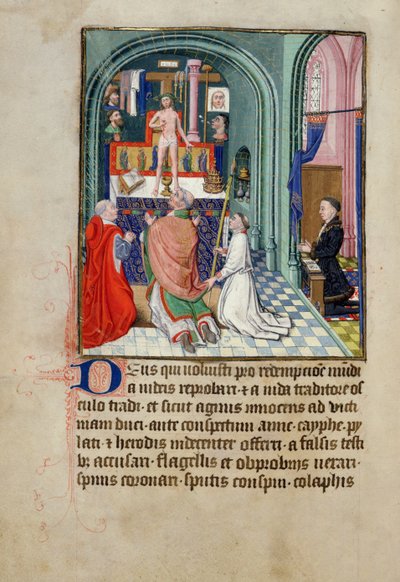 Deus qui voluisti pro redempcione mundi
a iudeis reprobari · et a iuda traditore os
culo tradi · et sicut agnus innocens ad victi
mam duci · ante conspectum anne · cayphe · py
lati · et herodis indecenter offerri · a falsis testi
bus accusari · flagellis et obprobriis vexari ·
spinis coronari · sputis conspui · colaphis